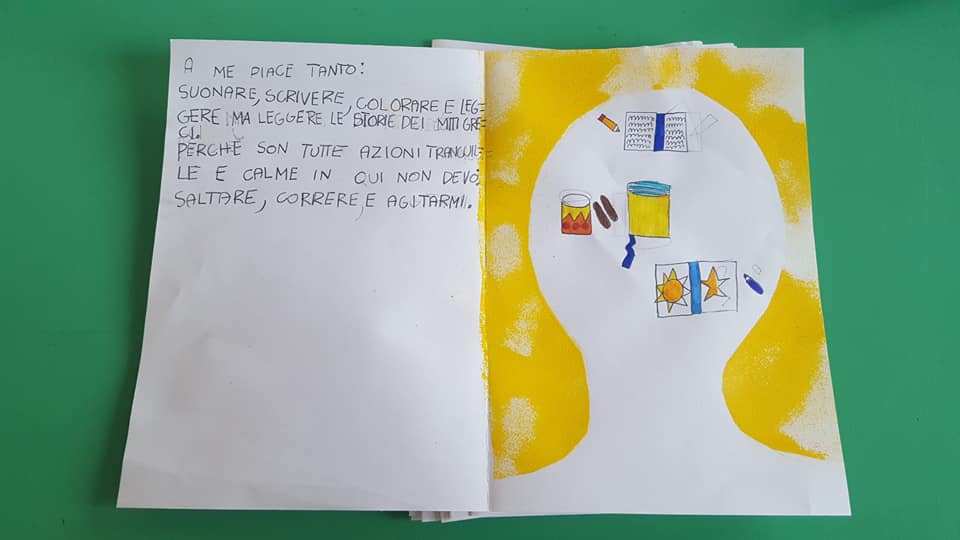 A ME PIACE TANTO:
SUONARE, SCRIVERE, COLORARE E LEG=
GERE MA LEGGERE LE STORIE DEI MITI GRE=
CI.
PERCHÈ SON TUTTE AZIONI TRANQUIL=
LE E CALME IN QUI NON DEVO
SALTARE, CORRERE, E AGITARMI.